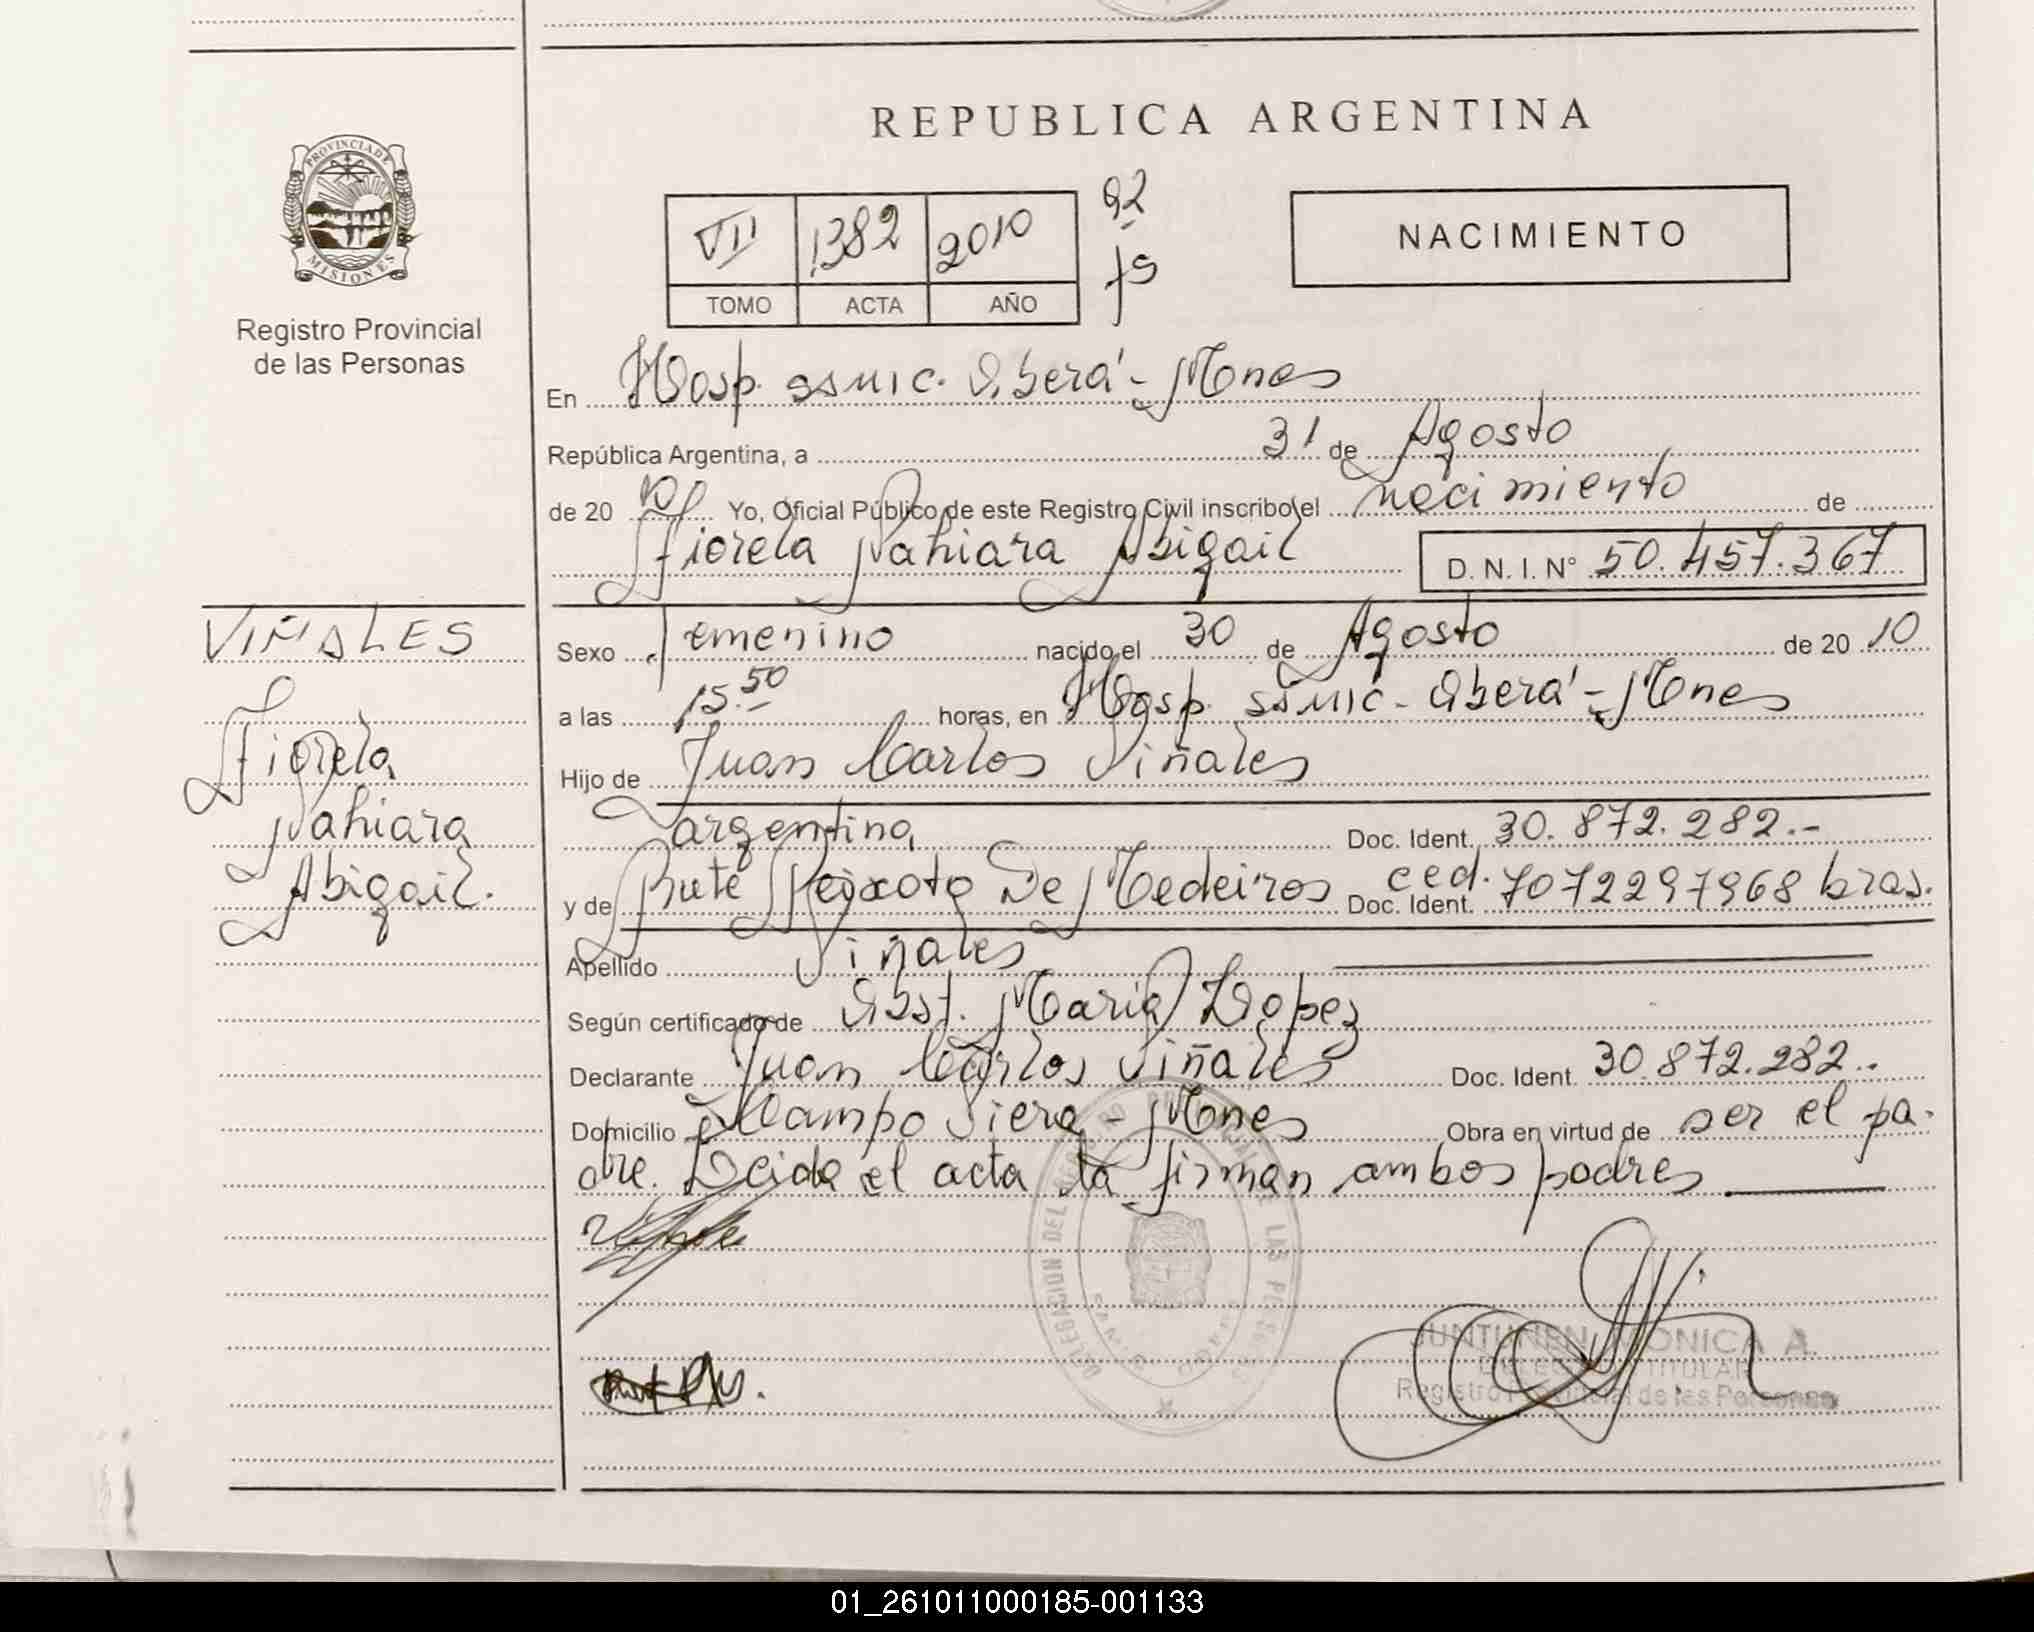 REPUBLICA ARGENTINA
PROVINCIA DE
MISIONES
Registro Provincial
de las Personas
VII 1382 2010 92
TOMO ACTA AÑO fs
NACIMIENTO
En Hosp. ssmic. Oberá - Mnes
República Argentina, a 31 de Agosto
de 20 10 Yo, Oficial Público de este Registro Civil inscribo el nacimiento de
Fiorela Nahiara Abigail D. N. I. N° 50.457.367
VIÑALES
Fiorela
Nahiara
Abigail.
Sexo femenino nacido el 30 de Agosto de 20 10
a las 15.50 horas, en Hosp. ssmic - Oberá - Mnes
Hijo de Juan Carlos Viñales
argentina Doc. Ident. 30.872.282.-
y de Rute Peixoto De Medeiros Doc. Ident. ced. 7072297968 bras.
Apellido Viñales
Según certificado de Obst. Maria Lopez
Declarante Juan Carlos Viñales Doc. Ident. 30.872.282..
Domicilio Campo Viera - Mnes Obra en virtud de ser el pa-
dre. Leida el acta la firman ambos padres
JUNTUNEN MONICA A.
TITULAR
Registro Provincial de las Personas
01_261011000185-001133